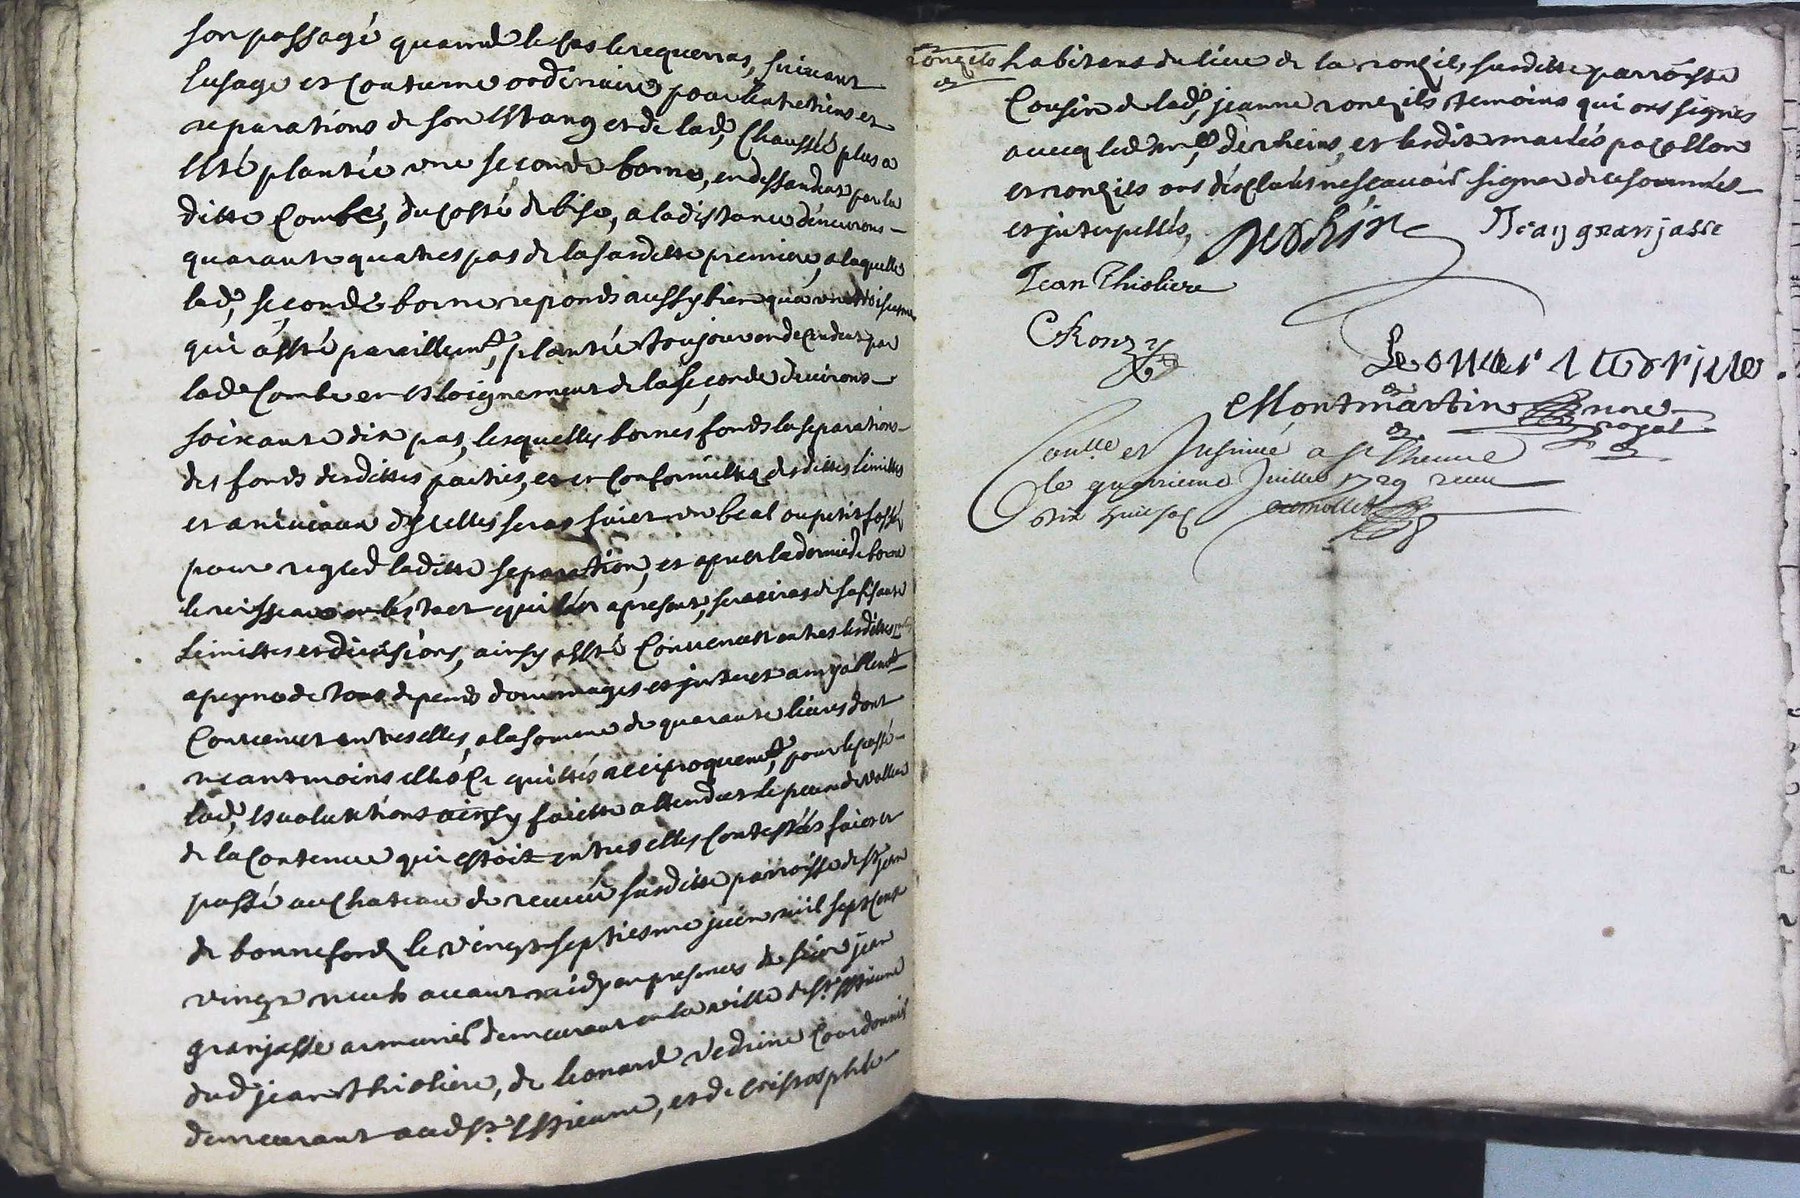 son passage quand le cas le requerras, suivant
lusage et coutume ordinaire pour lentretiens et
reparations de son estang et de lad.e Chaussée plus a
esté plantée une seconde borne, en dessandant par la
ditte Combe, du costé de bise, a la distance denvirons
quarante quatres pas de la susditte premiere, a laquelle
lad.e seconde borne reponds aussy bien qua une troisiesme
qui a esté pareillem.t plantée toujour en decendant par
lade Combe en Esloignement de la seconde denvirons
soixante dix pas, lesquelles bornes fonds la separations
des fonds desdittes parties, et en Conformitté desdittes limittes
et a niveaux dycelles seras fait un beal ou petit fossé
pour regler laditte separation, et apres la derniere borne
le ruisseau en lestaet quil est apresent, serviras de
Limittes et divisions, ainsy esté Convenus entres lesdittes
a peyne de tous depends dommages et interest
Convenus entres elles, a la somme de quarante livres dont
neantmoins elles se quittés reciproquem.t pour le passé
lad.e Esvalutations ainsy faitte attendus le peu de valleur
de la Contenue qui estoit entres elles Contestées fait et
passé au Chateau de susditte parroisse de st jean
de bonnefond le vingt septiesme juin mil sept cent
vingt neufs avant midy en presences de sieur jean
granjasse armurié demeurant en la ville de st. Estienne
dud jean thioliere, de leonard Vedrine Cordonnié
demeurant aud st. Estienne, et de cristosphle
ronzils habitant du lieu de la ronzils, susditte parroisse
Cousin de lad.e jeanne ronzils temoins qui ont signés
avecq led m.e et lesdits mariés payollon
et ronzils ons desclarés ne scavoir signer de ce sommés
et interpellés,
Jean granjasse
Jean Thioliere
C Ronzil
Montmartin no.re royal
Con.lle et Insinué a St Etienne
le quatrieme Juillet 1729 receu
dix huit sols